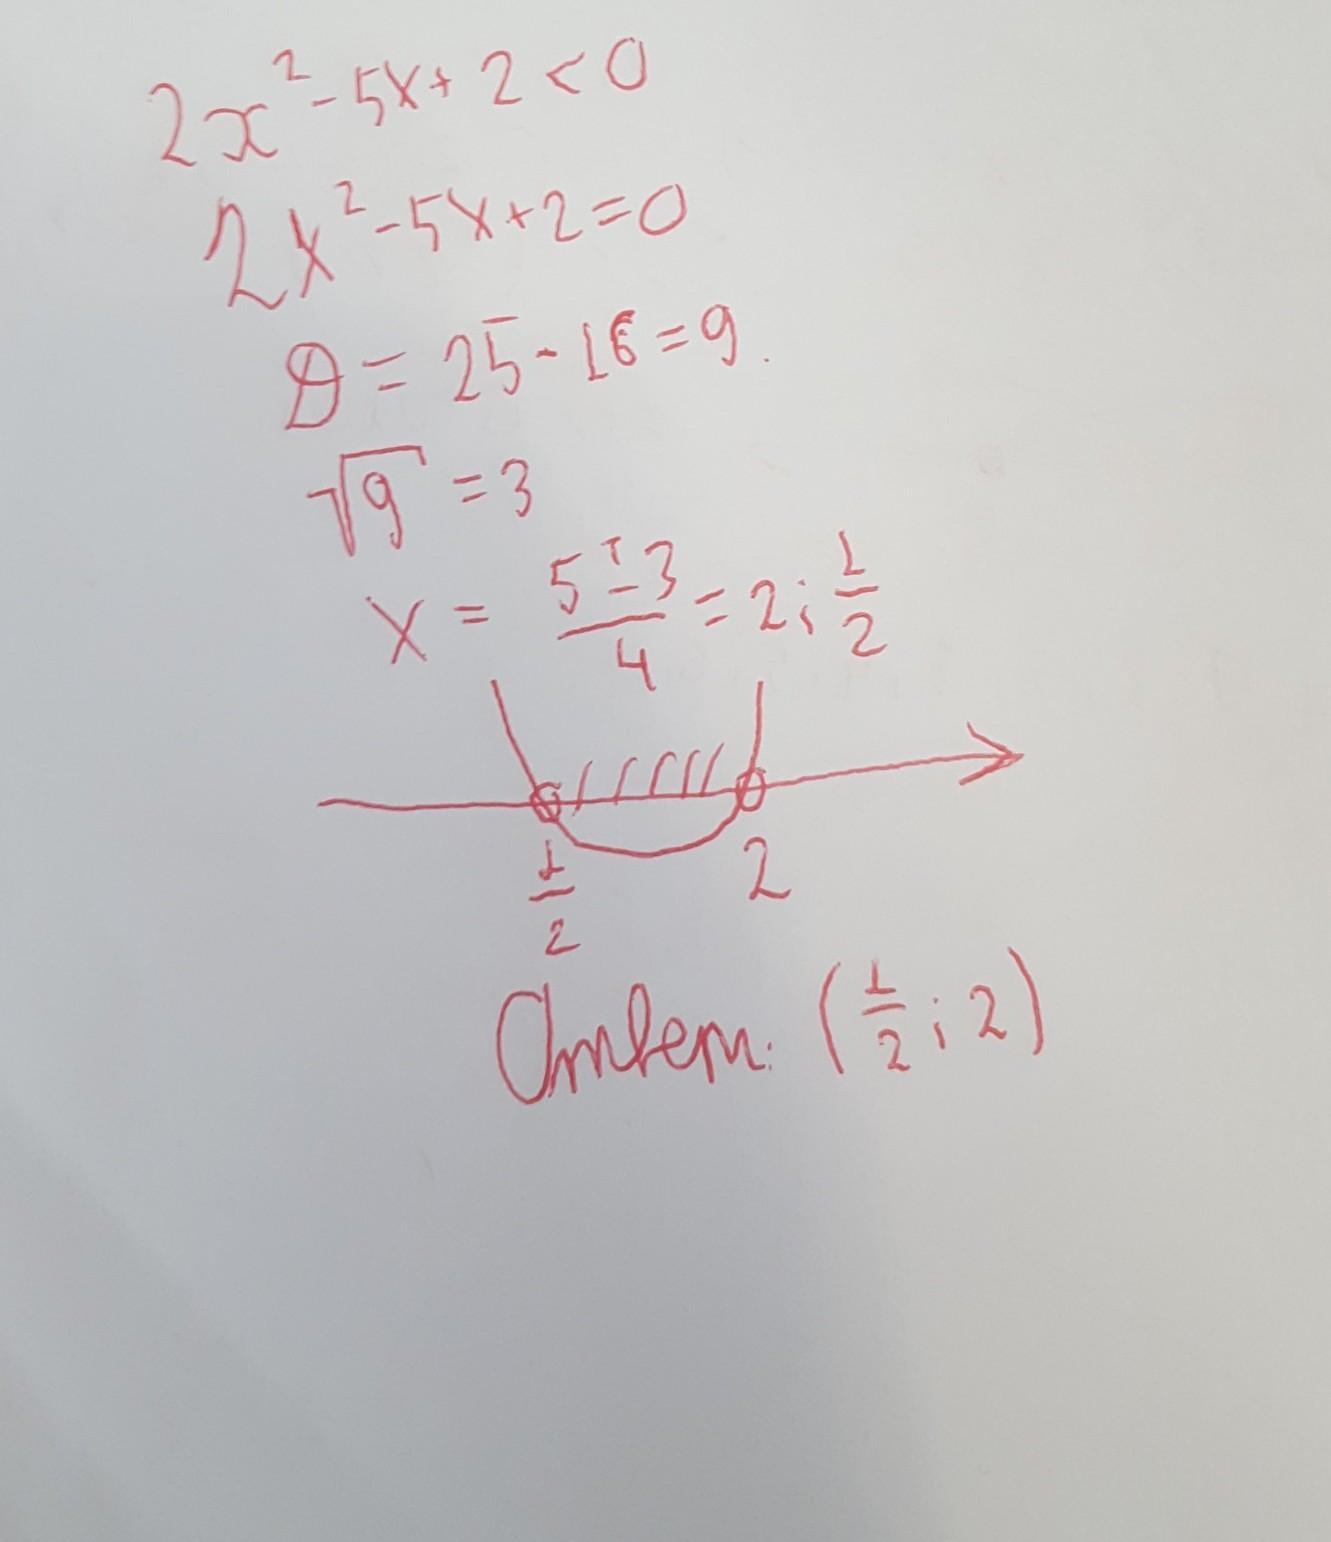 2x² - 5x + 2 < 0
2x² - 5x + 2 = 0
D = 25 - 16 = 9.
√9 = 3
x = (5 ± 3)/4 = 2; 1/2
1/2 2
Ответ: (1/2; 2)